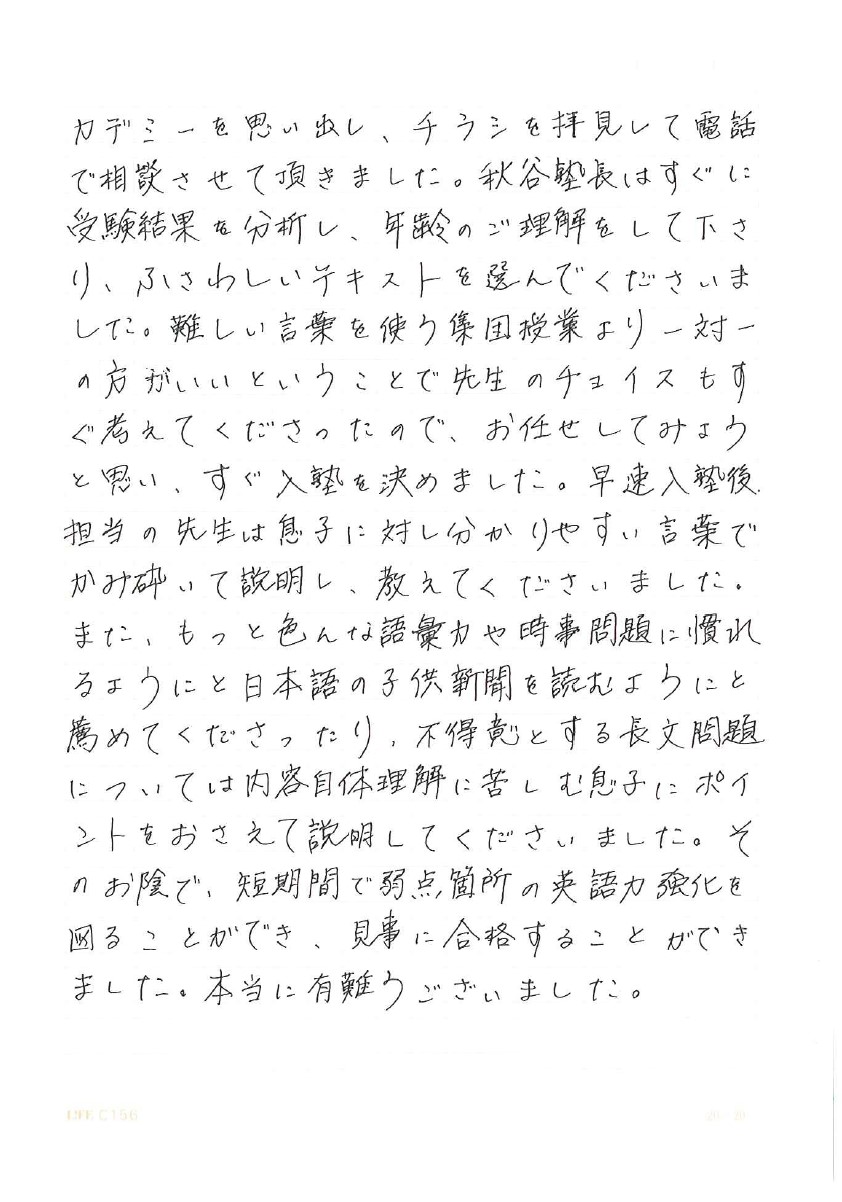 カデミーを思い出し、チラシを拝見して電話
で相談させて頂きました。秋谷塾長はすぐに
受験結果を分析し、年齢のご理解をして下さ
り、ふさわしいテキストを選んでくださいま
した。難しい言葉を使う集団授業より一対一
の方がいいということで先生のチョイスもす
ぐ考えてくださったので、お任せしてみよう
と思い、すぐ入塾を決めました。早速入塾後、
担当の先生は息子に対し分かりやすい言葉で
かみ砕いて説明し、教えてくださいました。
また、もっと色んな語彙力や時事問題に慣れ
るようにと日本語の子供新聞を読むようにと
薦めてくださったり、不得意とする長文問題
については内容自体理解に苦しむ息子にポイ
ントをおさえて説明してくださいました。そ
のお陰で、短期間で弱点箇所の英語力強化を
図ることができ、見事に合格することができ
ました。本当に有難うございました。
LIFE C156
20×20